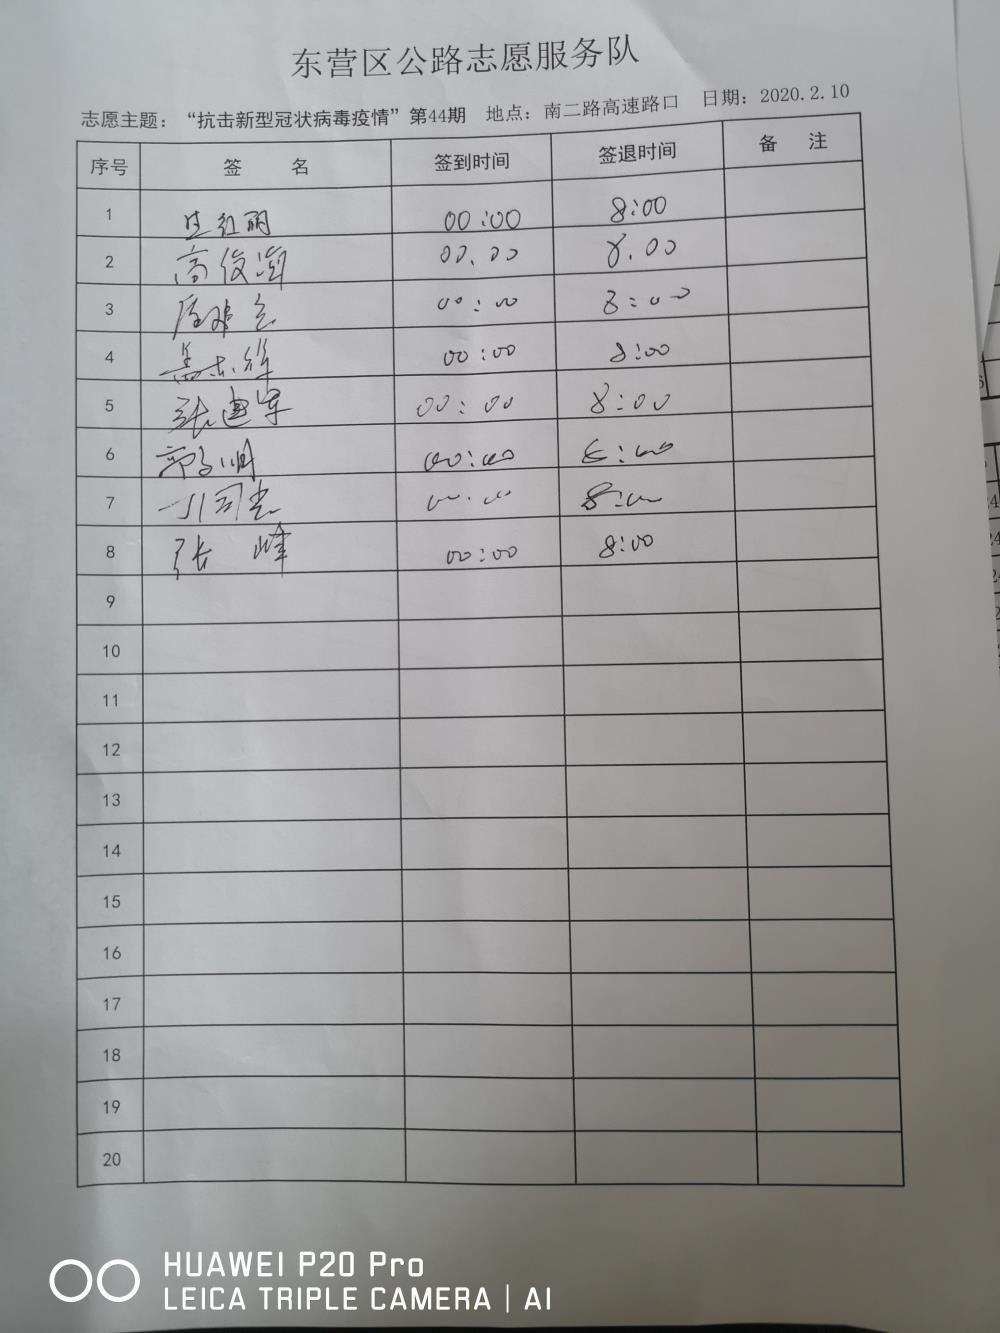 东营区公路志愿服务队
志愿主题：“抗击新型冠状病毒疫情”第44期 地点：南二路高速路口 日期：2020.2.10
序号 签 名 签到时间 签退时间 备 注
1 生红丽 00:00 8:00
2 高俊 00.00 8.00
3 00:00 8:00
4 00:00 8:00
5 张建军 00:00 8:00
6 郭 明 00:00 8:00
7 00:00 8:00
8 张 峰 00:00 8:00
9
10
11
12
13
14
15
16
17
18
19
20
HUAWEI P20 Pro
LEICA TRIPLE CAMERA | AI